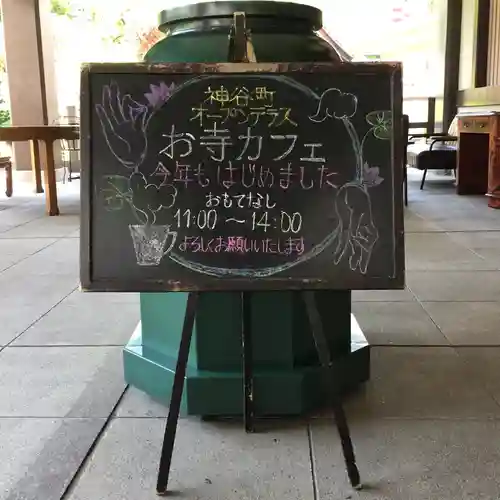 神谷町
オープンテラス
お寺カフェ
今年もはじめました
おもてなし
11:00〜14:00
よろしくお願いいたします